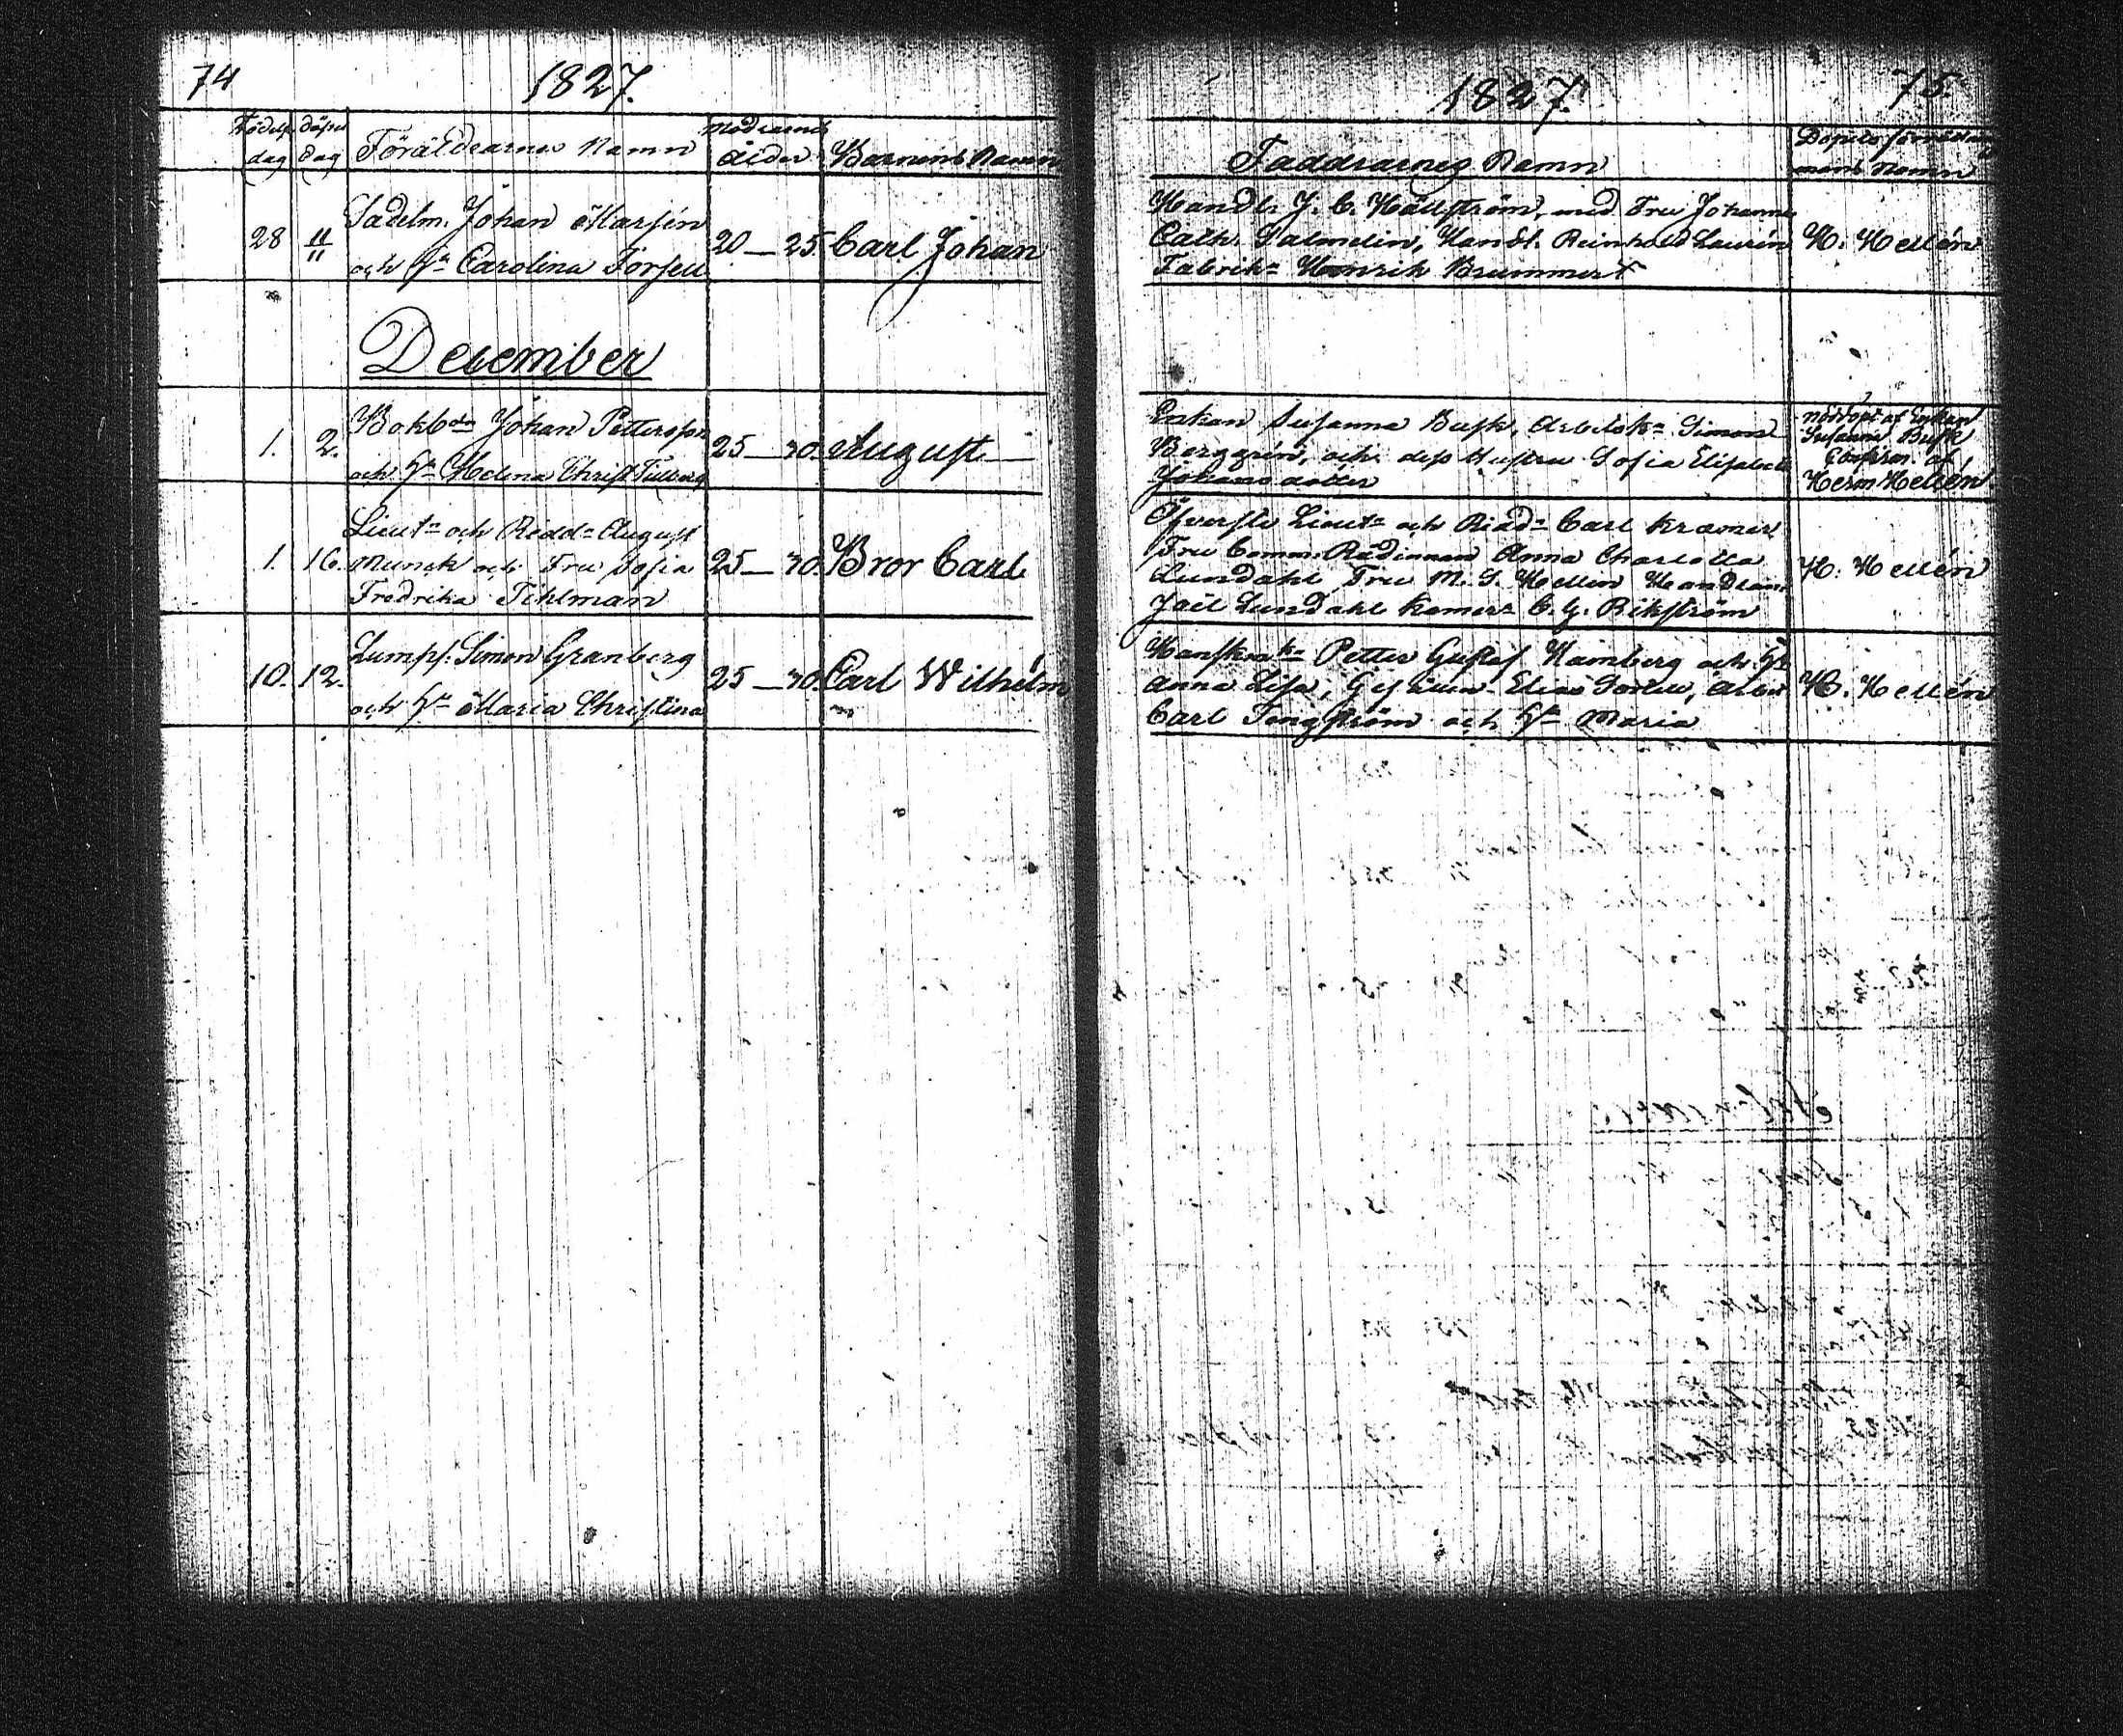 74
1827.
Födelse dag
döpsel dag
Föräldrarnes Namn
Mödrarnes ålder
Barnens Namn
28
11/11
Sadelm. Johan Marsén
och H:u Carolina Forsell
20 — 25.
Carl Johan
December
1.
2.
Bokb:n Johan Pettersson
och H:u Helena Christ. Tullberg
25 — 30.
August
1.
16.
Lieut:n och Ridd:n August
Munck och Fru Sofia
Fredrika Tihlman
25 — 30.
Bror Carl
10.
12.
Lumps: Simon Granberg
och H:u Maria Christina
25 — 30.
Carl Wilhelm
1827.
75.
Faddrarnes Namn
mans Namn
Handl. J. C. Hällström, med Fru Johanna
Cath. Salmelin, Handl. Reinhold Laurén
Fabrik:n Henrik Brummer
H. Hellén
Enkan Susanna Busk, Arbetsk:n Simon
Berggrén, och dess Hustru Sofia Elisabeth
Johansdotter
Nöddöpt af Enkan
Susanna Busk
Confirm. af
Herm. Hellén
Öfverste Lieut:n och Ridd:n Carl Kræmer
Fru Comm: Rådinnan Anna Charlotta
Lundahl Fru M. S. Hellén
Lundahl C. G. Rikström
H. Hellén
Petter Gustaf Hamberg och H:u
Anna Lisa, Elias
Carl Tengström och H:u Maria
H. Hellén